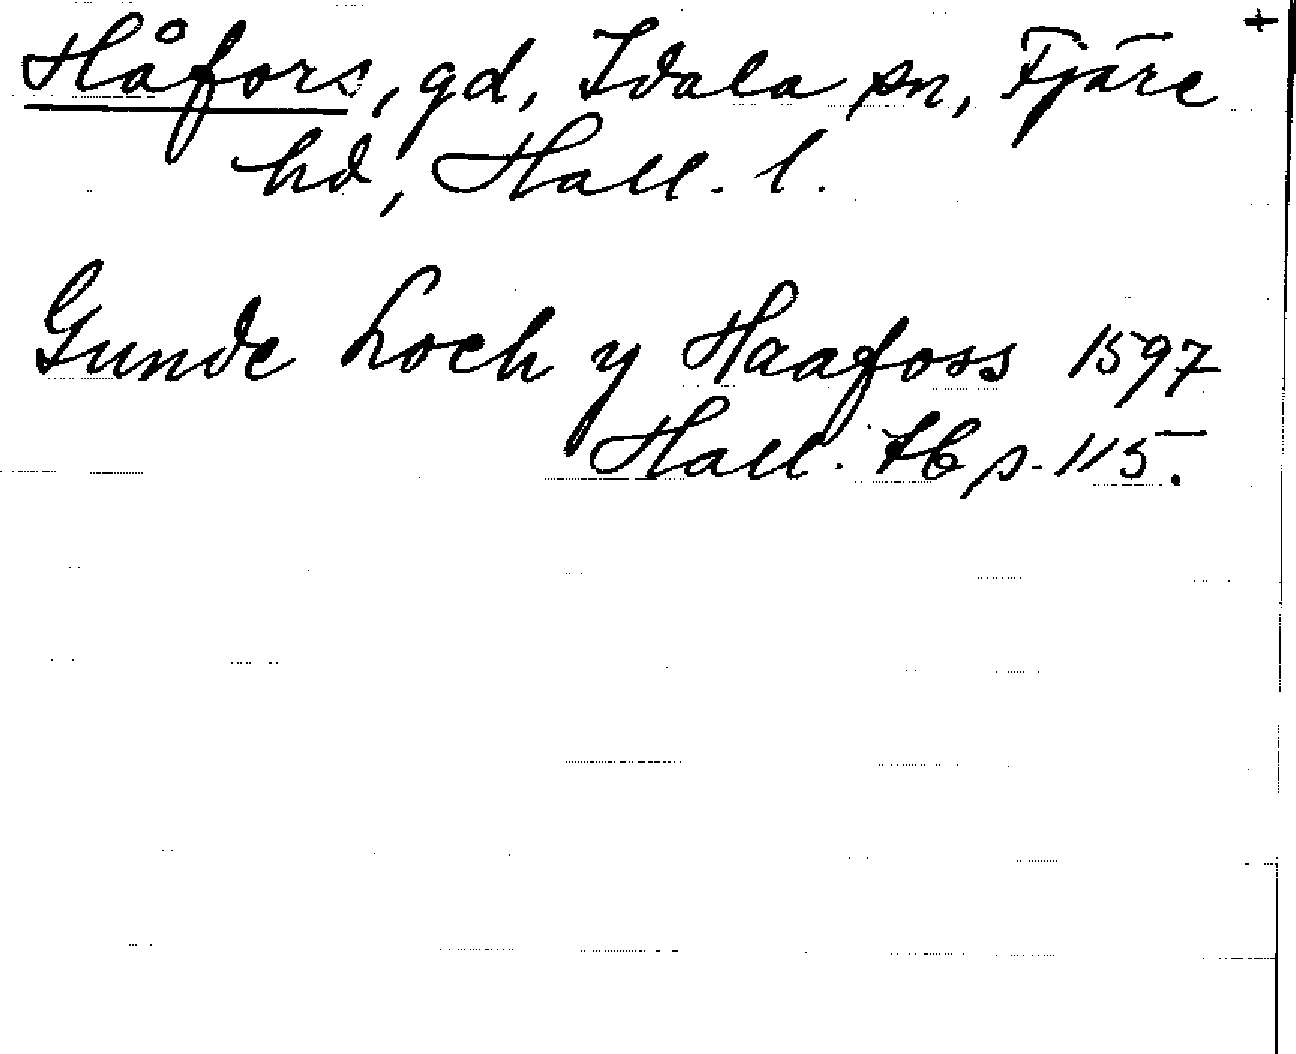 +
Håfors, gd, Idala sn, Fjäre
hd, Hall. l.
Gunde Loch y Haafoss 1597
Hall. tb p. 115.